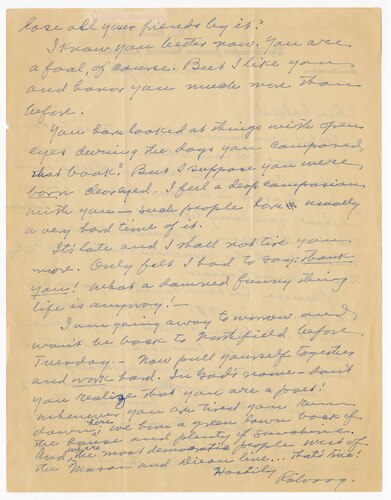 lose all your friends by it?
I know you better now. You are
a fool, of course. But I like you
and honor you much more than
before.
You have looked at things with open
eyes during the days you composed
that book? But I suppose you were
born cleareyed. I feel a deep compassion
with you — such people have usually
a very hard time of it.
It's late and I shall not tire you
more. Only felt I had to say: thank
you! What a damned funny thing
life is anyway! —
I am going away tomorrow and
won't be back to Northfield before
Tuesday. — Now pull yourself together
and work hard. In God's name — don't
you realize that you are a poet!
Whenever you are tired you run
down here; we have a green lawn back of
the house and plenty of sunshine.
And we are the most democratic people west of
the Mason and Dixon line... that's true!
Hastily
Rölvaag.